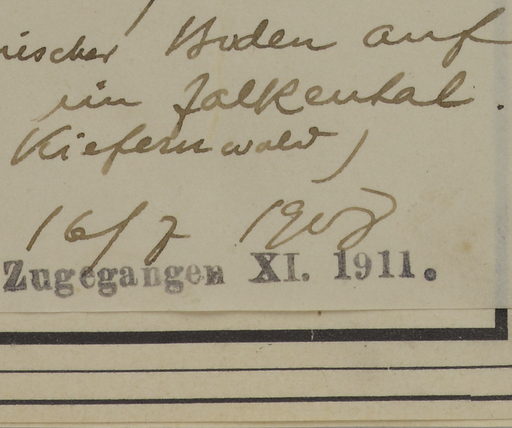 nischer Boden auf
im Falkental.
Kiefernwald)
16/7 1908
Zugegangen XI. 1911.